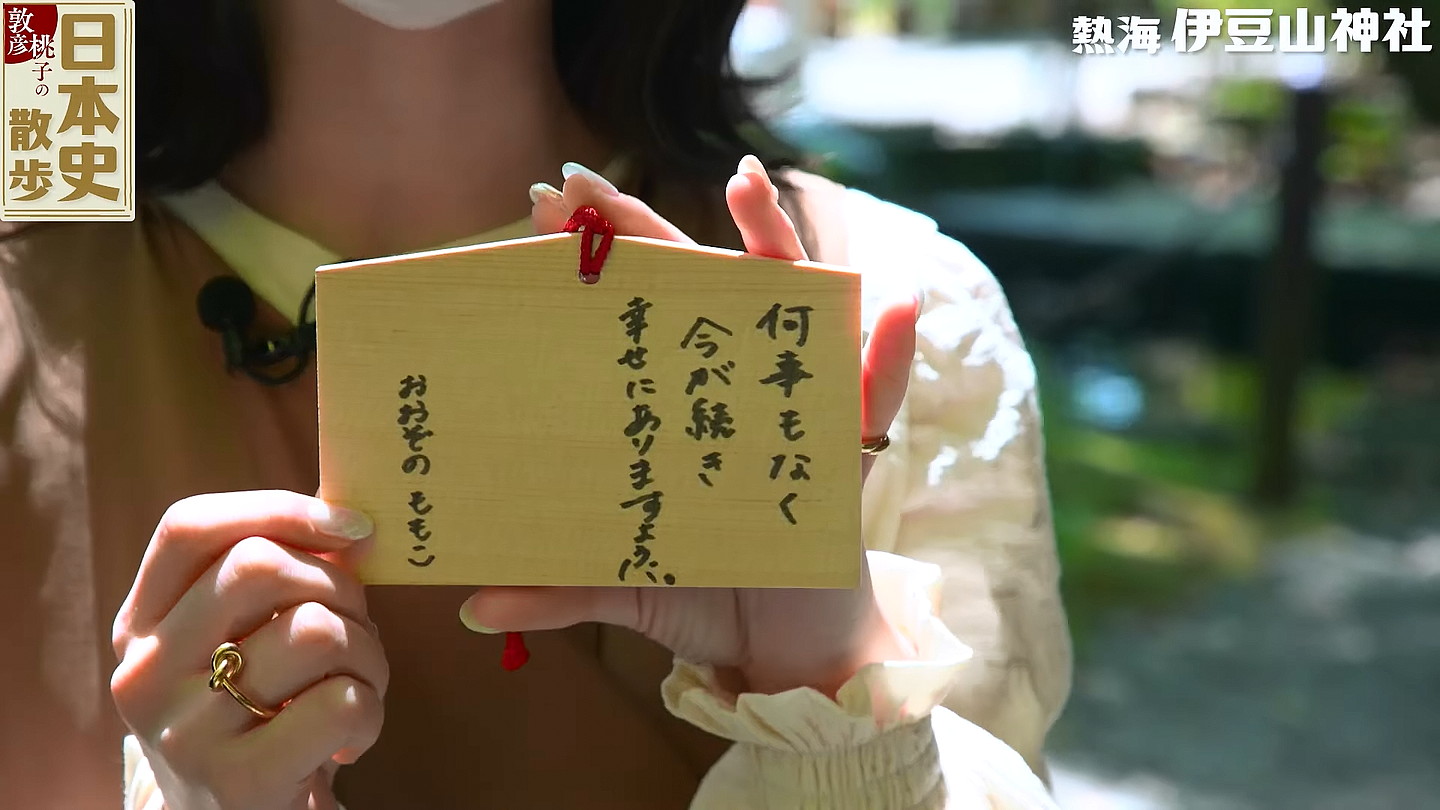 敦彦
桃子の
日本史
散歩
熱海 伊豆山神社
何事もなく
今が続き
幸せにありますように。
おおぞの ももこ